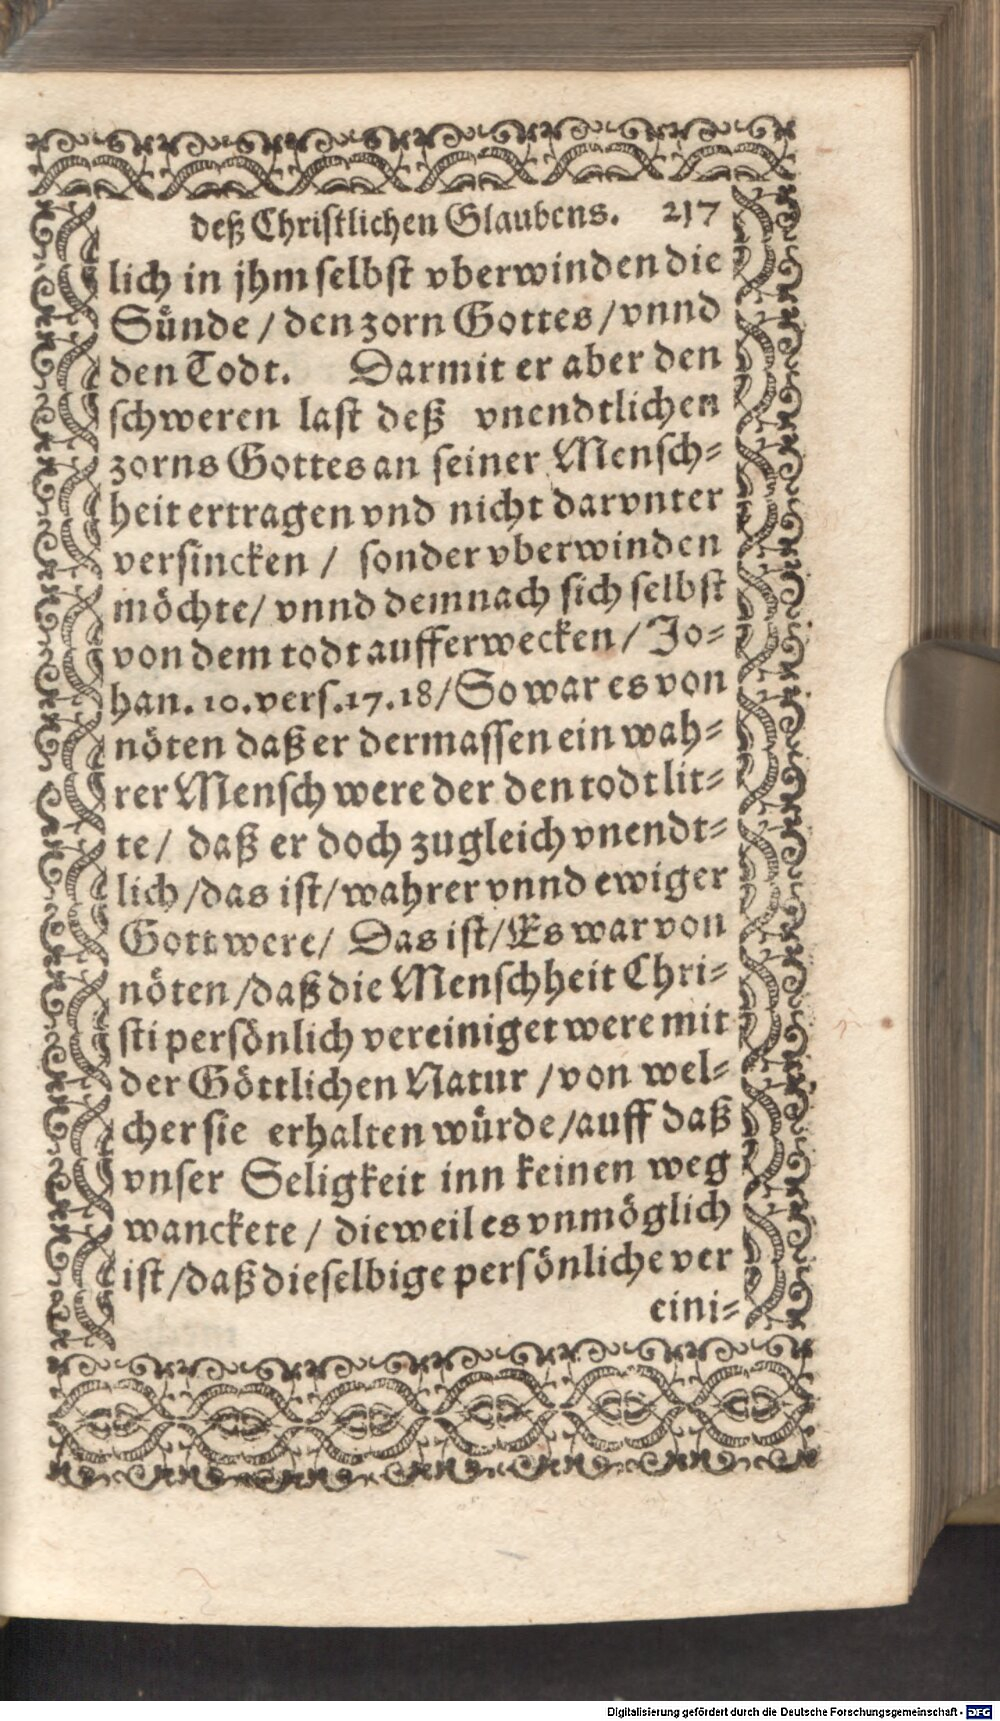 deß Christlichen Glaubens. 217
lich in jhm selbst vberwinden die
Sünde / den zorn Gottes / vnnd
den Todt. Darmit er aber den
schweren last deß vnendtlichen
zorns Gottes an seiner Mensch-
heit ertragen vnd nicht darvnter
versincken / sonder vberwinden
möchte / vnnd demnach sich selbst
von dem todt aufferwecken / Jo-
han. 10. vers. 17. 18 / So war es von
nöten daß er dermassen ein wah-
rer Mensch were der den todt lit-
te / daß er doch zugleich vnendt-
lich / das ist / wahrer vnnd ewiger
Gott were / Das ist / Es war von
nöten / daß die Menschheit Chri-
sti persönlich vereiniget were mit
der Göttlichen Natur / von wel-
cher sie erhalten würde / auff daß
vnser Seligkeit inn keinen weg
wanckete / dieweil es vnmöglich
ist / daß dieselbige persönliche ver
eini-
Digitalisierung gefördert durch die Deutsche Forschungsgemeinschaft - DFG